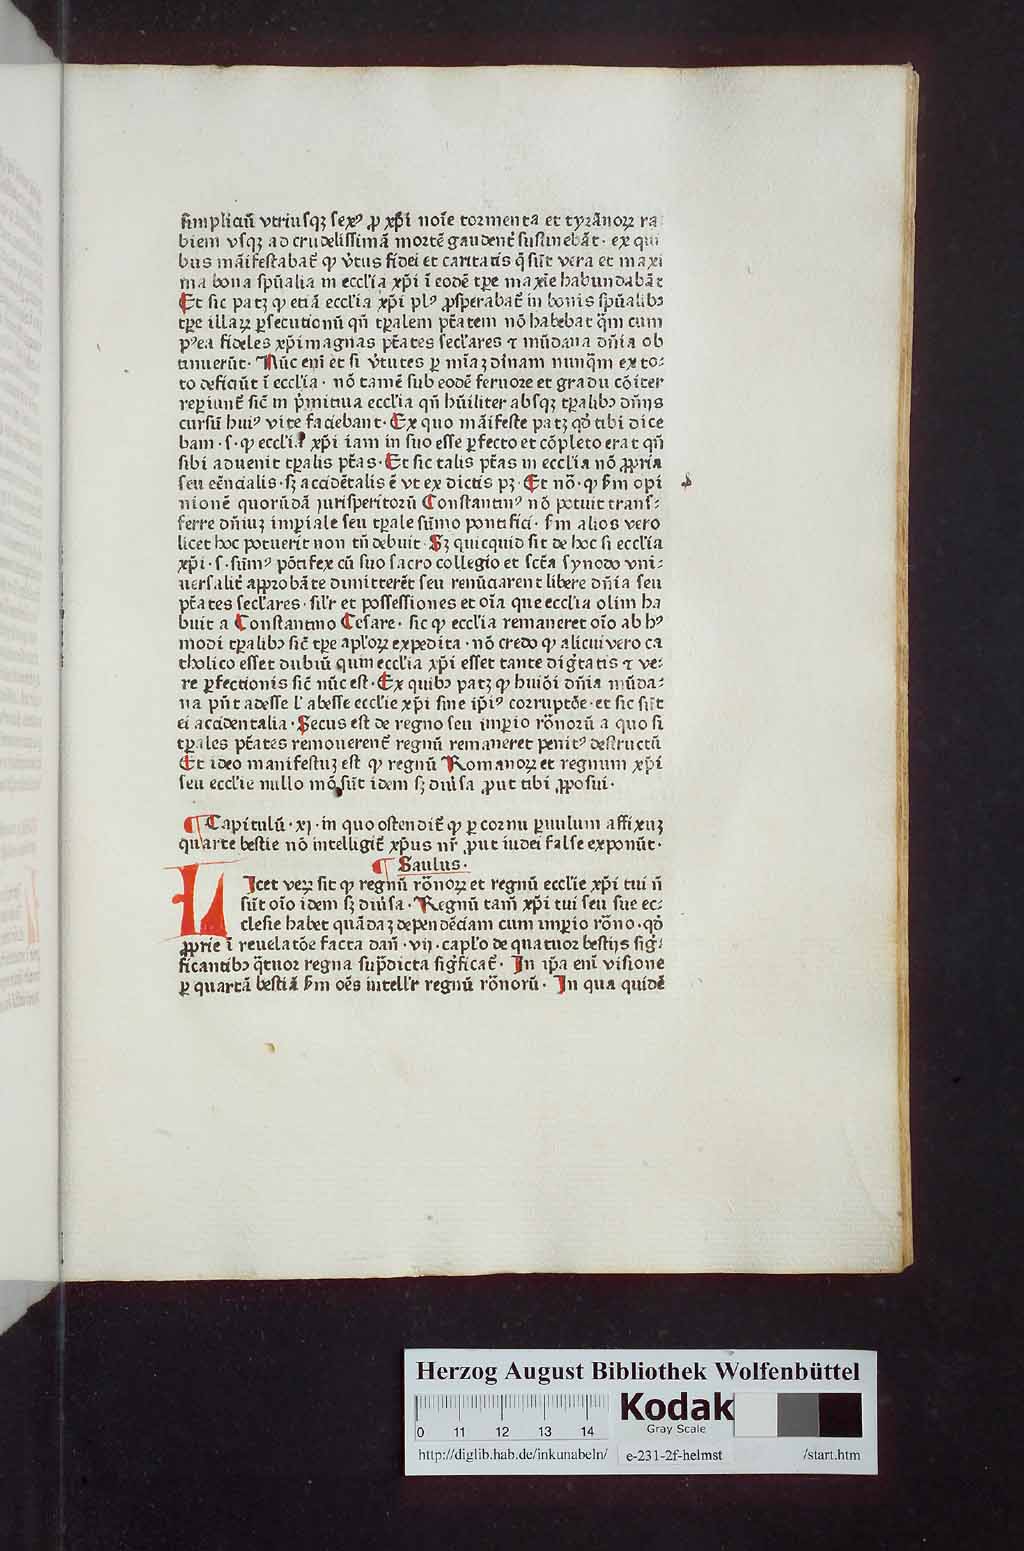 simpliciū vtriusqꝫ sexꝰ ꝓ xp̄i noīe tormenta et tyrānoꝝ ra
biem vsqꝫ ad crudelissimā mortē gaudent̄ sustinebāt · ex qui
bus māifestabat̄ ꝙ v̄tus fidei et caritatis q̄ sūt vera et maxi
ma bona spūalia in eccl'ia xp̄i ī eodē tꝑe maxīe habundabāt
Et sic patꝫ ꝙ etiā eccl'ia xp̄i plꝰ ꝓsperabat̄ in bonis spūalibꝫ
tꝑe illaꝝ ꝑsecutionū qn̄ tꝑalem ptātem nō habebat q̄m cum
pꝰea fideles xp̄i magnas ptātes secl'ares ⁊ mūdana dn̄ia ob
tinuerūt · Nūc enī et si v̄tutes ꝑ mīaꝫ diuīnam nunq̄m ex to⸗
to deficiūt ī eccl'ia · nō tamē sub eodē feruore et gradu cōiter
reperiunt̄ sic̄ in p̄mitiua eccl'ia qn̄ hūiliter absqꝫ tꝑalibꝫ dn̄ijs
cursū huiꝰ vite faciebant · Ex quo māifeste patꝫ qd̄ tibi dice
bam · s · ꝙ eccl'ia xp̄i iam in suo esse ꝑfecto et cōpleto erat qn̄
sibi aduenit tꝑalis ptās · Et sic talis ptās in eccl'ia nō ꝓpria
seu eēncialis · sꝫ accidētalis ē vt ex dictis pꝫ · Et nō · ꝙ s̄m opi
nionē quorūdā jurisperitorū Constantinꝰ nō potuit trans⸗
ferre dn̄iuꝫ impiale seu tꝑale sūmo pontifici · s̄m alios vero
licet hoc potuerit non tn̄ debuit · Sꝫ quicquid sit de hoc si eccl'ia
xp̄i · s · sūmꝰ pōtifex cū suo sacro collegio et sctā synodo vni⸗
uersalit̄ approbāte dimitterēt seu renūciarent libere dn̄ia seu
ptātes secl'ares · sil'r et possessiones et oīa que eccl'ia olim ha
buit a Constantino Cesare · sic ꝙ eccl'ia remaneret oīo ab hꝰ
modi tꝑalibꝫ sic̄ tꝑe apl'oꝝ expedita · nō credo ꝙ alicui vero ca
tholico esset dubiū quin eccl'ia xp̄i esset tante dig̅tatis ⁊ ve⸗
re ꝑfectionis sic̄ nūc est · Ex quibꝫ patꝫ ꝙ huiōi dn̄ia mūda⸗
na pn̄t adesse l' abesse eccl'ie xp̄i sine ip̄iꝰ corruptōe · et sic sūt
ei accidentalia · Secus est de regno seu impio rōnorū a quo si
tꝑales ptātes remouerent̄ regnū remaneret penitꝰ destructū
Et ideo manifestuꝫ est ꝙ regnū Romanoꝝ et regnum xp̄i
seu eccl'ie nullo mō sūt idem sꝫ diūsa ꝓut tibi ꝓposui ·
¶ Capitulū · xj · in quo ostendit̄ ꝙ ꝑ cornu ꝑuulum affixuꝫ
quarte bestie nō intelligit̄ xp̄us nr̄ ꝓut iudei false exponūt ·
¶ Saulus ·
LIcet veꝝ sit ꝙ regnū rōnoꝝ et regnū eccl'ie xp̄i tui n̄
sūt oīo idem sꝫ diūsa · Regnū tam̄ xp̄i tui seu sue ec⸗
clesie habet quādaꝫ dependēciam cum impio rōno · qd̄
ꝓprie ī reuelatōe facta dan̄ · vij · capl'o de quatuor bestijs sig̅⸗
ficantibꝫ q̄tuor regna sup̄dicta sig̅ficat̄ · In ip̄a enī visione
ꝑ quartā bestiā s̄m oēs intell'r regnū rōnorū · In qua quidē
Herzog August Bibliothek Wolfenbüttel
0 11 12 13 14
Kodak
Gray Scale
http://diglib.hab.de/inkunabeln/ e-231-2f-helmst /start.htm